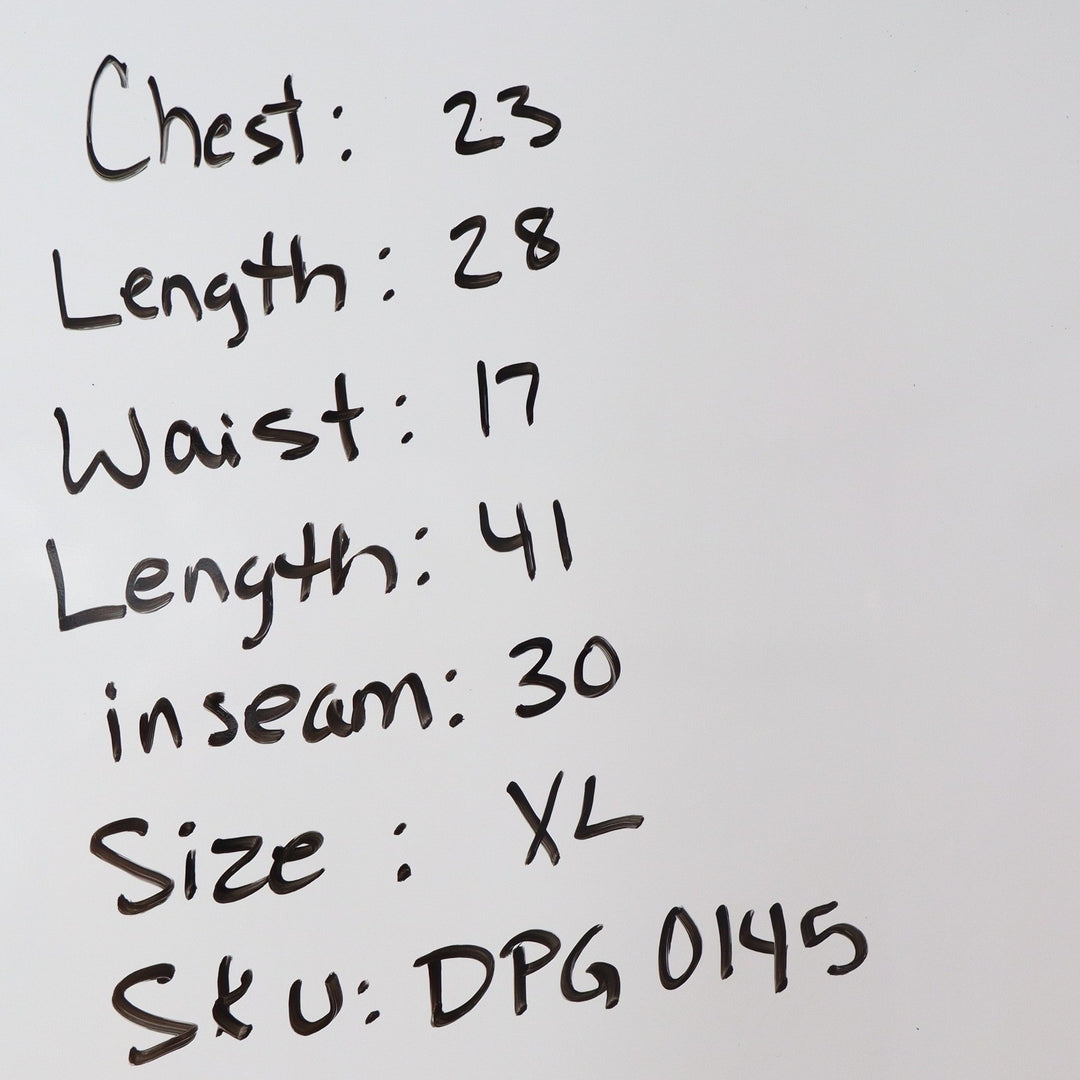 Chest: 23
Length: 28
Waist: 17
Length: 41
inseam: 30
Size: XL
Sku: DPG 0145